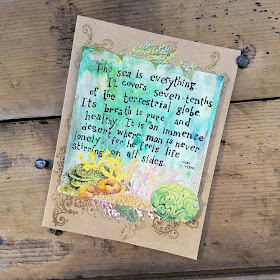 The sea is everything
It covers seven-tenths
of the terrestrial globe.
Its breath is pure and
healthy. It is an immense
desert where man is never
lonely for he feels life
stirring on all sides.